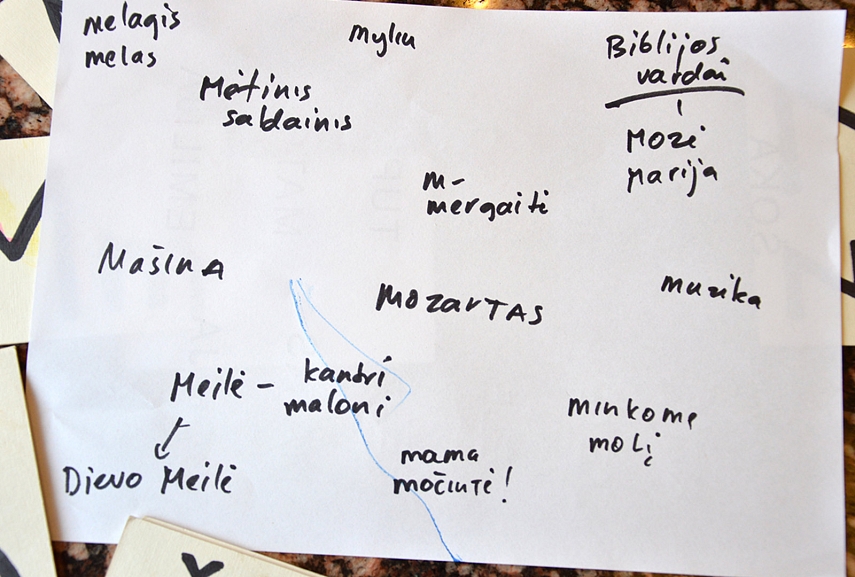 melagis
melas
myliu
Biblijos
vardai
Mėtinis
saldainis
Mozė
Marija
M-
mergaitė
Mašina
Mozartas
muzika
Meilė - kantri
maloni
minkome
molį
Dievo Meilė
mama
močiutė!